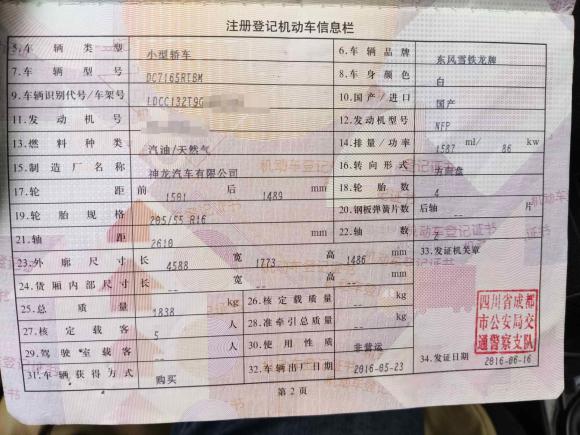 注册登记机动车信息栏
5.车辆类型 小型轿车 6.车辆品牌 东风雪铁龙牌
7.车辆型号 DC7165RTBM 8.车身颜色 白
9.车辆识别代号/车架号 LDCC13Z T9G 10.国产/进口 国产
11.发动机号 12.发动机型号 NFP
13.燃料种类 汽油/天然气 14.排量/功率 1587 ml/ 86 kw
15.制造厂名称 神龙汽车有限公司 16.转向形式 方向盘
17.轮距 前 1501 后 1489 mm 18.轮胎数 4
19.轮胎规格 205/55 R16 20.钢板弹簧片数 后轴 -- 片
21.轴距 2610 mm 22.轴数
23.外廓尺寸 长 4588 宽 1773 高 1486 mm 33.发证机关章
24.货厢内部尺寸 长 -- 宽 -- 高 -- mm
25.总质量 1838 kg 26.核定载质量 -- kg
27.核定载客 5 人 28.准牵引总质量 -- kg
29.驾驶室载客 -- 人 30.使用性质 非营运
31.车辆获得方式 购买 32.车辆出厂日期 2016-05-23 34.发证日期 2016-06-16
四川省成都
市公安局交
通警察支队
第2页